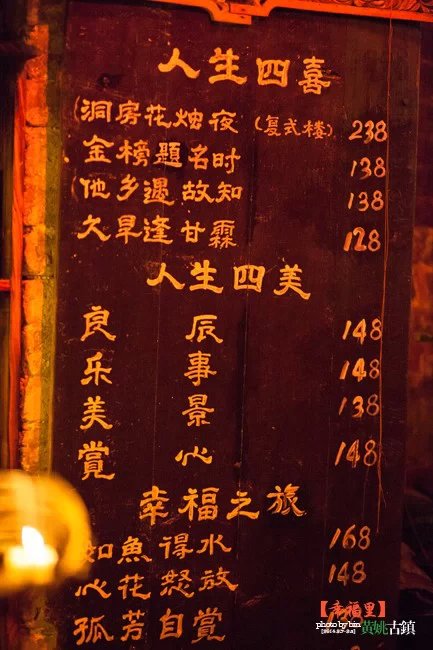 人生四喜
洞房花烛夜(复式楼) 238
金榜題名时 138
他乡遇故知 138
久旱逢甘霖 128
人生四美
良辰 148
乐事 148
美景 138
賞心 148
幸福之旅
如魚得水 168
心花怒放 148
孤芳自賞
【幸福里】
photo by bin 黄姚古鎮